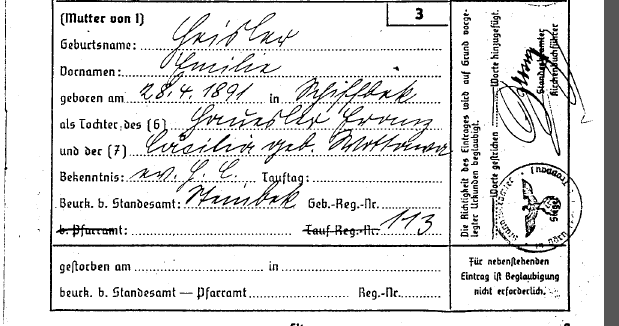 (Mutter von 1)
3
Geburtsname: Heisler
Vornamen: Emilie
geboren am 28.4.1891 in Schiffbek
als Tochter des (6) Haeusler Franz
und der (7) Cäsilia geb. Wottawa
Bekenntnis: ev. Tauftag:
Beurk. b. Standesamt: Steinbek Geb.-Reg.-Nr.
b. Pfarramt: Tauf-Reg.-Nr. 113
gestorben am in
beurk. b. Standesamt — Pfarramt Reg.-Nr.
Die Richtigkeit des Eintrages wird auf Grund vorge-
legter Urkunden beglaubigt.
Worte gestrichen Worte hinzugefügt.
Standesbeamter
Kirchenbuchführer
Siegel
Troppau
Für nebenstehenden
Eintrag ist Beglaubigung
nicht erforderlich.